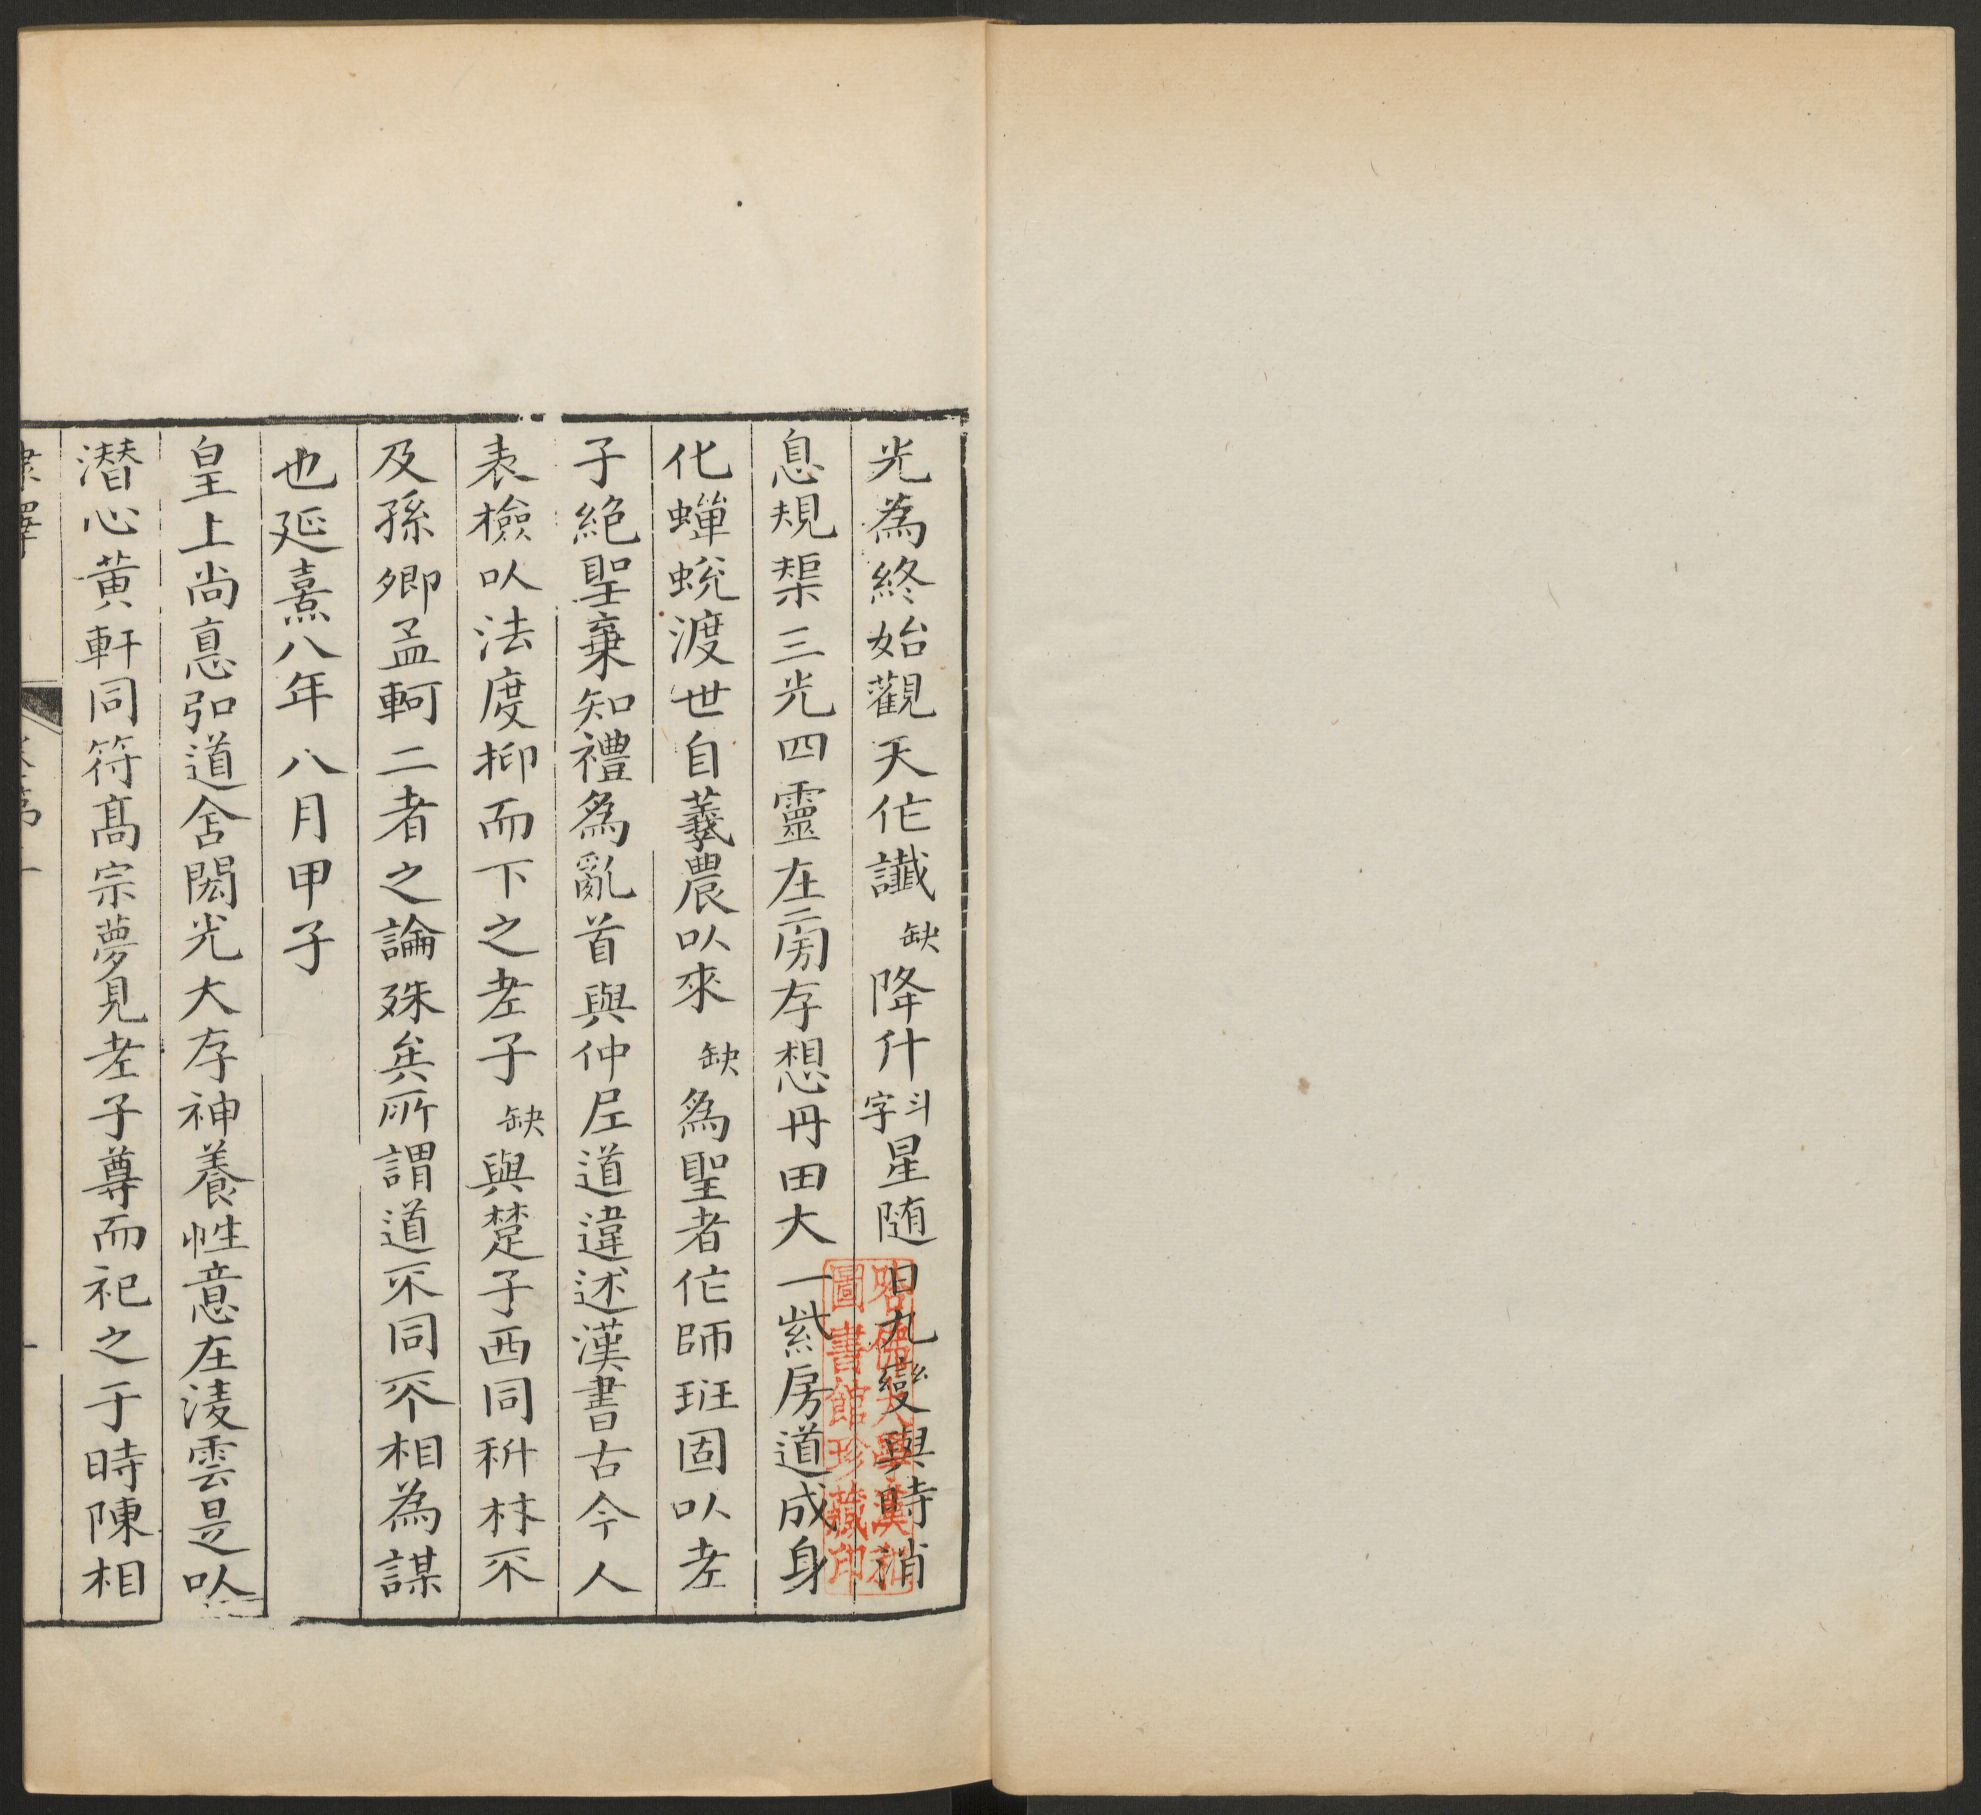 光為終始觀天作讖缺降什斗字星随日九變與時消
息規榘三光四靈在㫄存想丹田大一紫房道成身
化蟬蛻渡世自羲農以來缺為聖者作師班固以老
子絶聖棄知禮為亂首與仲尼道違述漢書古今人
表檢以法度抑而下之老子缺與楚子西同科材不
及孫卿孟軻二者之論殊矣所謂道不同不相為謀
也延熹八年八月甲子
皇上尚悳弘道含閎光大存神養性意在淩雲是以
潜心黄軒同符髙宗夢見老子尊而祀之于時陳相
隸釋
哈佛大學漢和
圖書館珍藏印